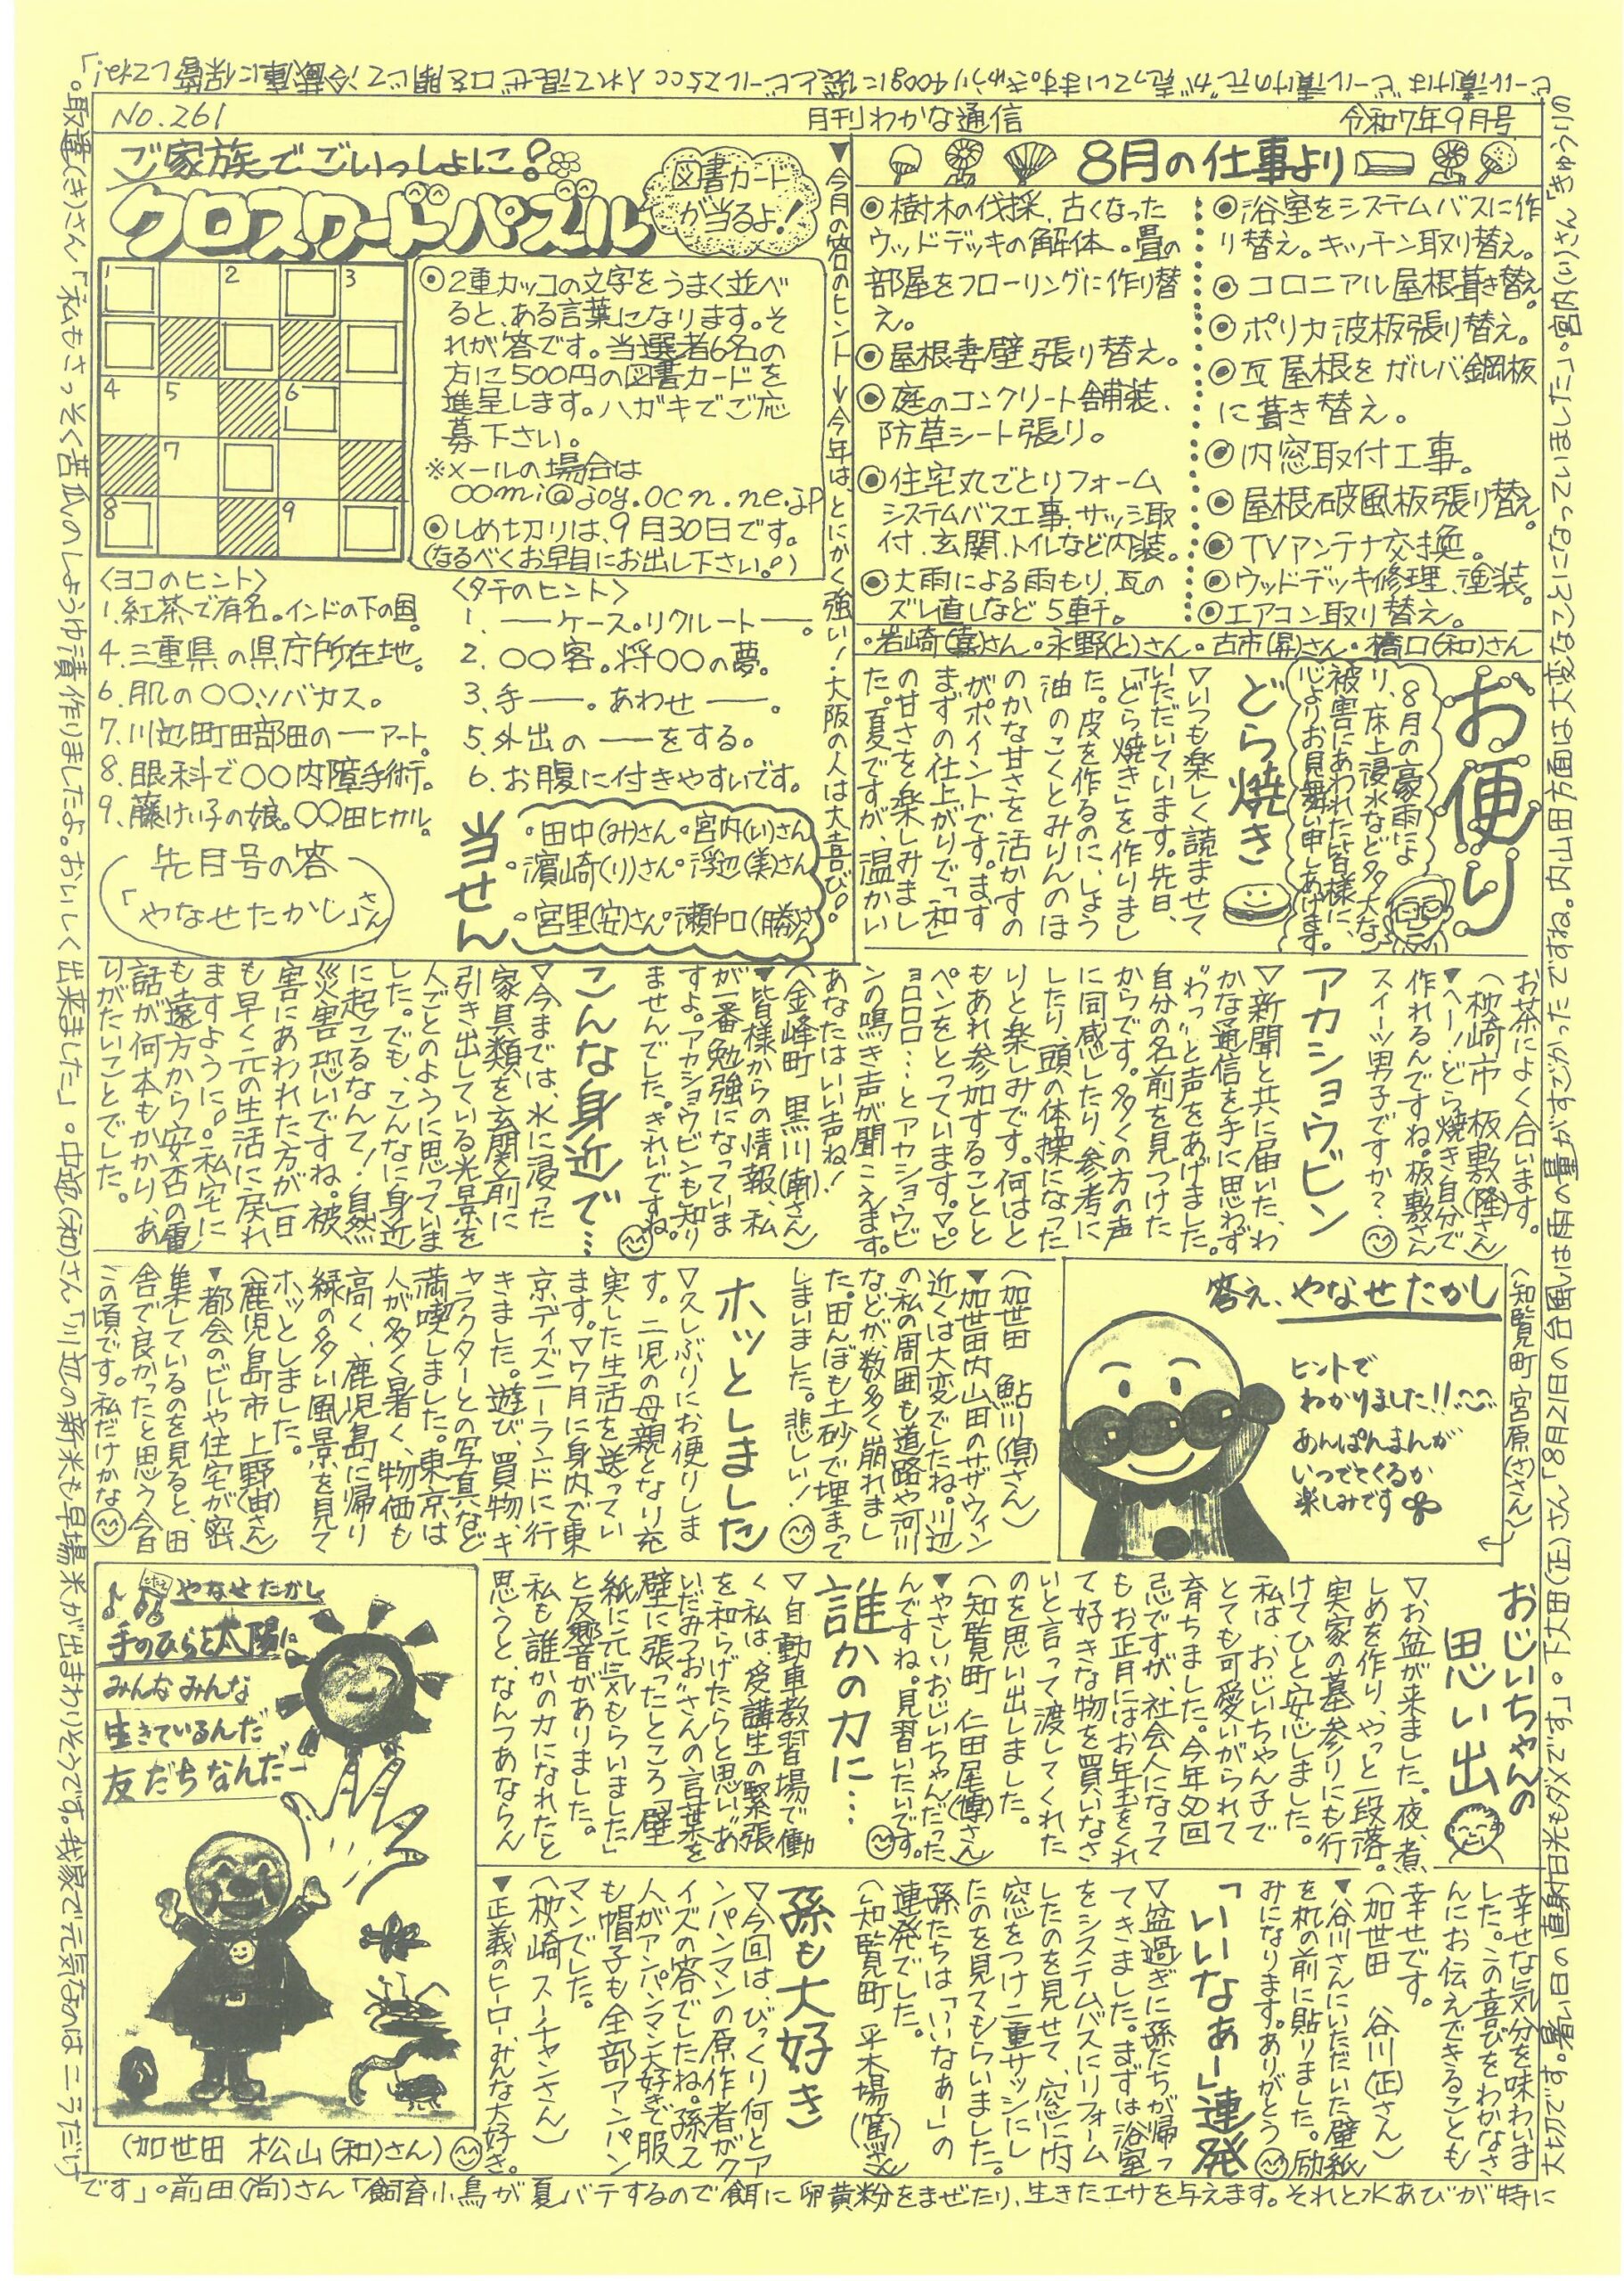 No.261
月刊わかな通信
令和7年9月号
ご家族でごいっしょに?
クロスワードパズル
図書カード
が当るよ!
1
2
3
4
5
6
7
8
9
◉2重カッコの文字をうまく並べ
ると、ある言葉になります。そ
れが答です。当選者6名の
方に500円の図書カードを
進呈します。ハガキでご応
募下さい。
※メールの場合は
oomi@joy.ocn.ne.jp
◉しめ切りは、9月30日です。
(なるべくお早目にお出し下さい。)
▼今月の答のヒント→今年はとにかく強い!大阪の人は大喜び。
<ヨコのヒント>
1.紅茶で有名。インドの下の国。
4.三重県の県庁所在地。
6.肌の○○、ソバカス。
7.川辺町田部田の―アート。
8.眼科で○○内障手術。
9.藤けい子の娘。○○田ヒカル。
<タテのヒント>
1.―ケース。リクルート―。
2.○○客。将○○の夢。
3.手―。あわせ―。
5.外出の―をする。
6.お腹に付きやすいです。
先月号の答
「やなせたかし」さん
当せん
・田中(み)さん・宮内(い)さん
・濵崎(り)さん・浮辺(美)さん
・宮里(安)さん・瀬戸口(勝)さん
8月の仕事より
◉樹木の伐採、古くなった
ウッドデッキの解体。畳の
部屋をフローリングに作り替
え。
◉屋根妻壁張り替え。
◉庭のコンクリート舗装、
防草シート張り。
◉住宅丸ごとリフォーム
システムバス工事、サッシ取
付、玄関、トイレなど内装。
◉大雨による雨もり、瓦の
ズレ直しなど5軒。
◉浴室をシステムバスに作
り替え。キッチン取り替え。
◉コロニアル屋根葺き替え。
◉ポリカ波板張り替え。
◉瓦屋根をガルバ鋼板
に葺き替え。
◉内窓取付工事。
◉屋根破風板張り替え。
◉TVアンテナ交換。
◉ウッドデッキ修理、塗装。
◉エアコン取り替え。
・岩崎(喜)さん・永野(と)さん・古市(昇)さん・橋口(和)さん
お便り
8月の豪雨によ
り、床上浸水など多大な
被害にあわれた皆様に、
心よりお見舞い申しあげます。
どら焼き
▽いつも楽しく読ませて
いただいています。先日、
「どら焼き」を作りまし
た。皮を作るのに、しょう
油のこくとみりんのほ
のかな甘さを活かすの
がポイントです。ます
まずの仕上がりで「和」
の甘さを楽しみまし
た。夏ですが、温かい
お茶によく合います。
(枕崎市 板敷(隆)さん)
▼へー!どら焼き自分で
作れるんですね。板敷さん
スイーツ男子ですか?
アカショウビン
▽新聞と共に届いた、わ
かな通信を手に思わず
“わっ”と声をあげました。
自分の名前を見つけた
からです。多くの方の声
に同感したり、参考に
したり、頭の体操になった
りと楽しみです。何はと
もあれ参加することと
ペンをとっています。▽ピ
ョロロロ…とアカショウビ
ンの鳴き声が聞こえます。
あなたはいい声ね!
(金峰町 黒川(南)さん)
▼皆様からの情報、私
が一番勉強になっていま
すよ。アカショウビンも知り
ませんでした。きれいですね。
こんな身近で…
▽今までは、水に浸った
家具類を玄関前に
引き出している光景を
人ごとのように思っていま
した。でも、こんなに身近
に起こるなんて!自然
災害恐いですね。被
害にあわれた方が一日
も早く元の生活に戻れ
ますように。私宅に
も遠方から安否の電
話が何本もかかり、あ
りがたいことでした。
(加世田 鮎川(倶)さん)
▼加世田内山田のサザウィン
近くは大変でしたね。川辺
の私の周囲も道路や河川
などが、数多く崩れまし
た。田んぼも土砂で埋まって
しまいました。悲しい!
ホッとしました
▽久しぶりにお便りしま
す。二児の母親となり充
実した生活を送ってい
ます。▽7月に身内で東
京ディズニーランドに行
きました。遊び、買物、キ
ャラクターとの写真など
満喫しました。東京は
人が多く暑く、物価も
高く、鹿児島に帰り
緑の多い風景を見て
ホッとしました。
(鹿児島市 上野(由)さん)
▼都会のビルや住宅が密
集しているのを見ると、田
舎で良かったと思う今日
この頃です。私だけかな
答え、やなせたかし
ヒントで
わかりました!!
あんぱんまんが
いつでてくるか
楽しみです
(知覧町 宮原(さ)さん)
おじいちゃんの
思い出
▽お盆が来ました。夜、煮
しめを作り、やっと一段落。
実家の墓参りにも行
けてひと安心しました。
私は、おじいちゃん子で
とても可愛いがられて
育ちました。今年50回
忌ですが、社会人になって
もお正月にはお年玉をくれ
て好きな物を買いなさ
いと言って渡してくれた
のを思い出しました。
(知覧町 仁田尾(博)さん)
▼やさしいおじいちゃんだった
んですね。見習いたいです。
誰かの力に…
▽自動車教習場で働
く私は、受講生の緊張
を和らげたらと思い“あ
いだみつお”さんの言葉を
壁に張ったところ「壁
紙に元気もらいました」
と反響音がありました。
私も誰かの力になれたと
思うと、なんつあならん
幸せな気分を味わいま
した。この喜びをわかなさ
んにお伝えできることも
幸せです。
(加世田 谷川(正)さん)
▼谷川さんにいただいた壁紙
を机の前に貼りました。励
みになります。ありがとう
「いいなぁー」連発
▽盆過ぎに孫たちが帰っ
てきました。まずは浴室
をシステムバスにリフォーム
したのを見せて、窓に内
窓をつけ二重サッシにし
たのを見てもらいました。
孫たちは「いいなぁー」の
連発でした。
(知覧町 平木場(篤)さん)
孫も大好き
▽今回は、びっくり何とア
ンパンマンの原作者がク
イズの答でしたね。孫え
人がアンパンマン大好きで服
も帽子も全部アンパン
マンでした。
(枕崎 スーチャンさん)
▼正義のヒーロー、みんな大好き。
やなせたかし
手のひらを太陽に
みんなみんな
生きているんだ
友だちなんだー
(加世田 松山(和)さん)
・宮内(い)さん「きゅうりの
ビール漬けは“ビール漬けの元”が売っています。きゅうり400gに1袋とビール25cc入れて混ぜ口を閉じて冷蔵庫に保管してね!」
・取違(き)さん「私もさっそく苦瓜のしょうゆ漬作りましたよ。おいしく出来ました」・中迫(和)さん「川辺の新米も早場米が出まわりそうです。我家で元気なのはニラだけ
です」・前田(尚)さん「飼育小鳥が夏バテするので餌に卵黄粉をまぜたり、生きたエサを与えます。それと水あびが特に
大切です。暑い日の直射日光もダメです」・下大田(正)さん「8月21日の台風は雨の量がすごかったですね。内山田方面は大変なことになっていました」